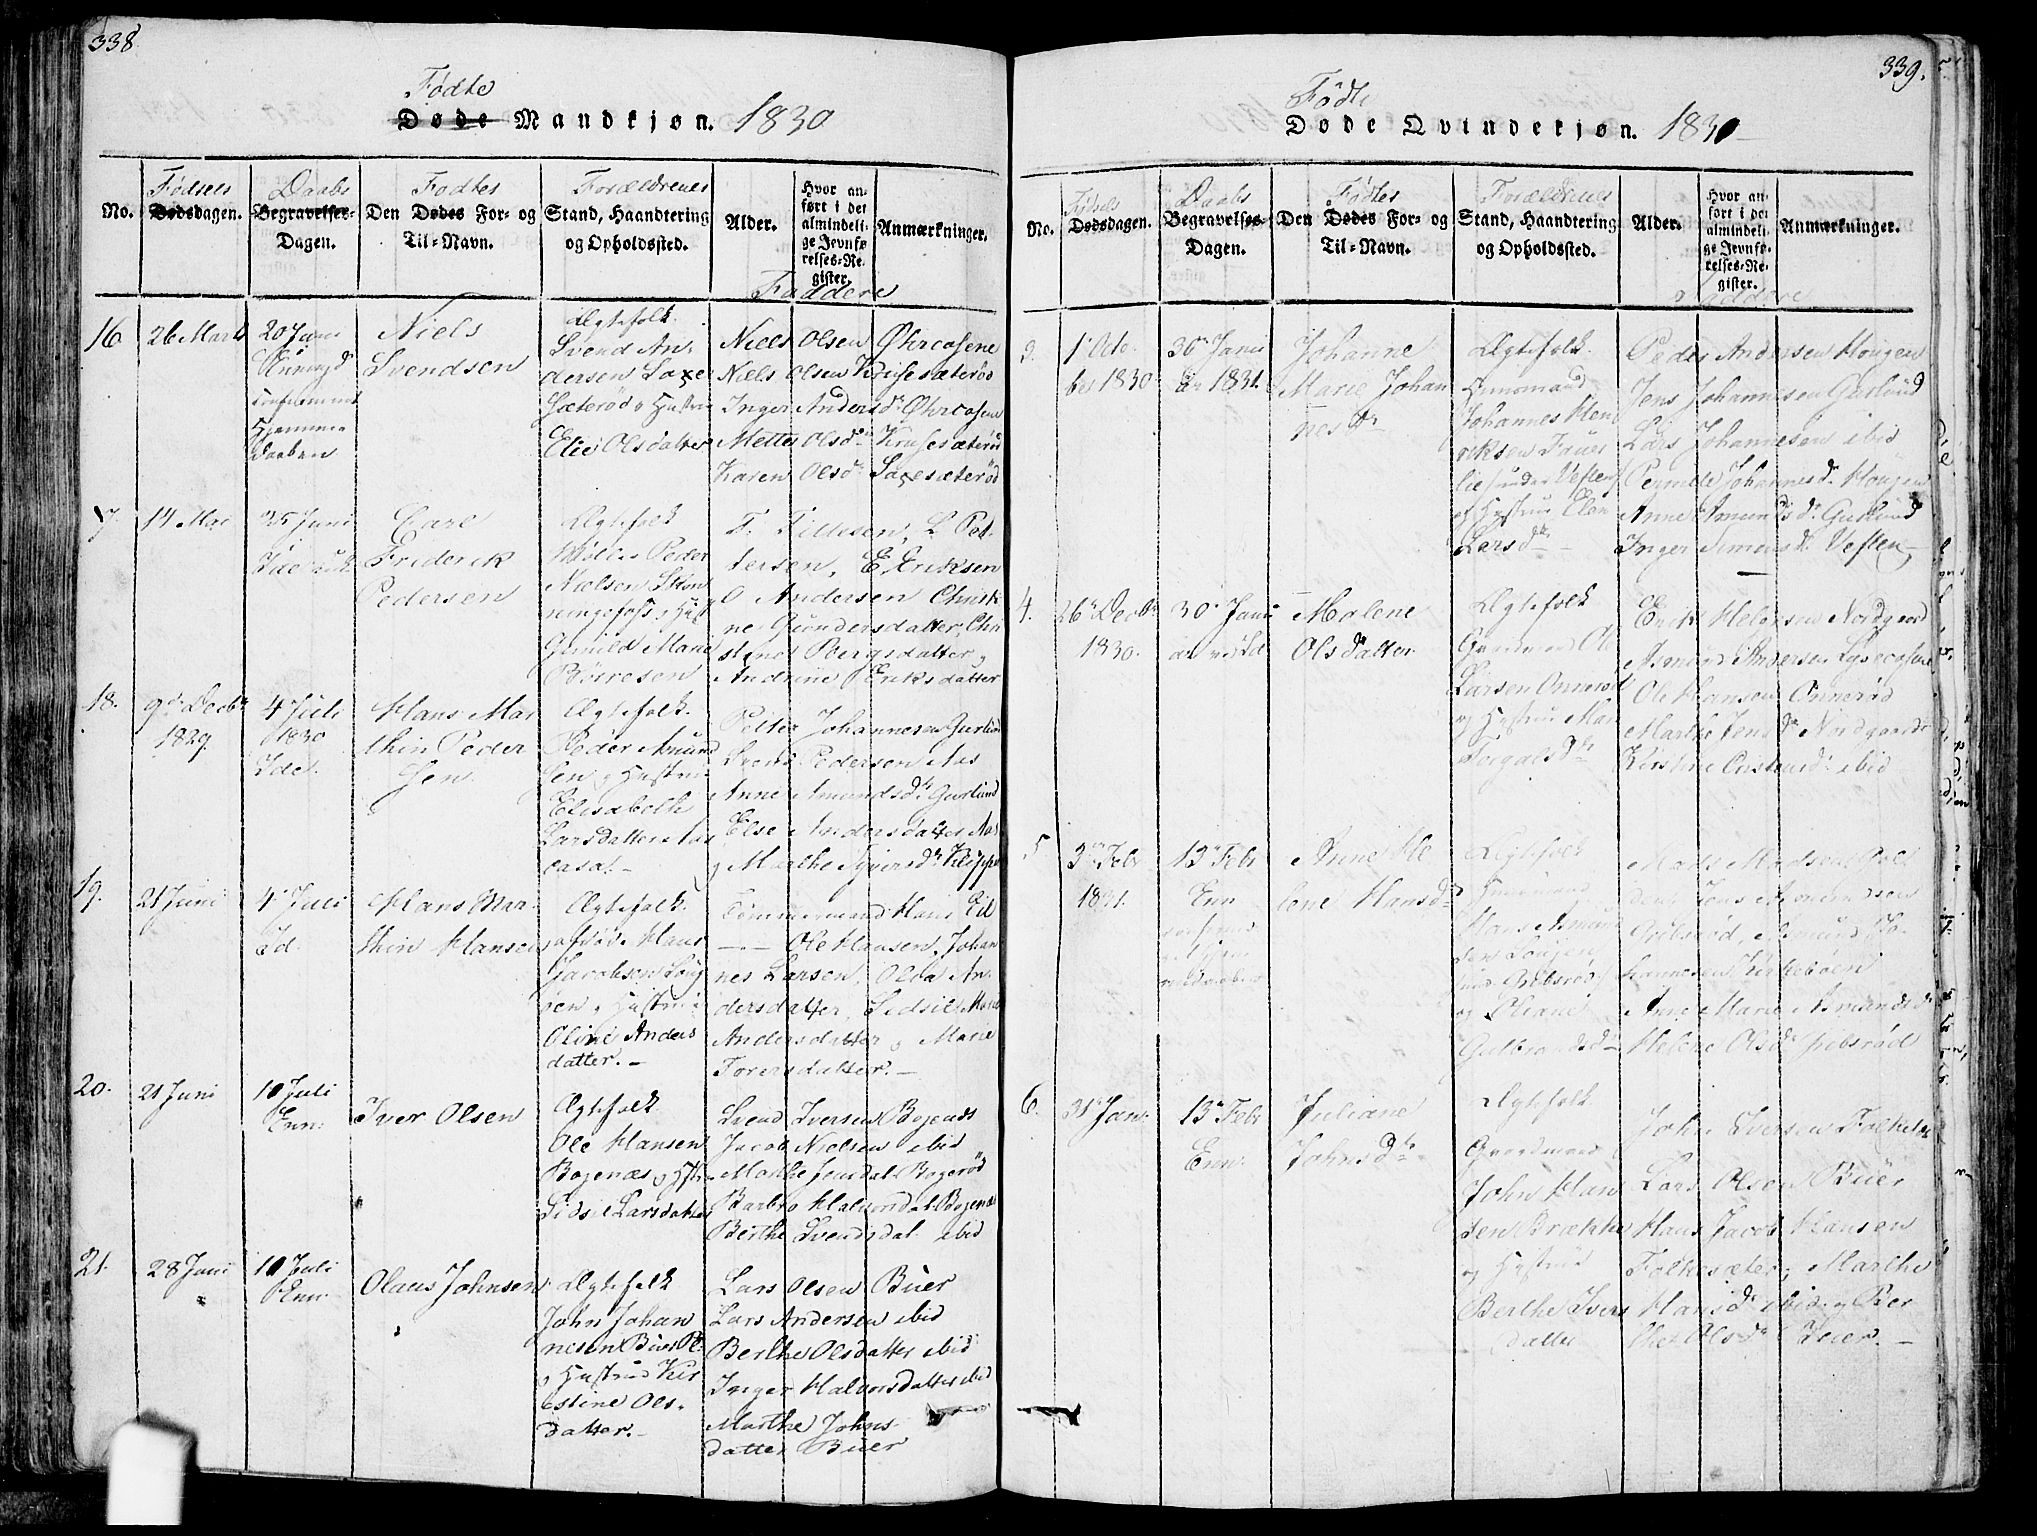 338
Fødte
Døde Mandkjøn. 1830
No.
Fødsels
Dødsdagen.
Daabs
Begravelses-
Dagen.
Fødtes
Den Dødes For- og
Til-Navn.
Forældrenes
Stand, Haandtering
og Opholdssted.
Alder.
Hvor an-
ført i det
almindeli-
ge Jevnfø-
relses-Re-
gister.
Anmærkninger.
Faddere
16
26 Marts
20 Juni
Hjemme
daaben
Niels
Svendsen
Ægtefolk
Svend An-
dersen Saxe
Sæterød og Hustru
Elie Olsdatter
Niels Olsen Ørcasene
Niels Olsen Krusesæterød
Inger Andersdr Ørcasene
Mette Olsdr Krusesæterød
Karen Olsdr Saxesæterød
7.
14 Mai
25 Juni
Carl
Friderik
Pedersen
Ægtefolk
Møller Peder
Nielsen Skon-
ningsfoss, Hust
Gunild Marie
Børresen
F. Tillesen, L Pet-
tersen, E. Eriksen
O Andersen Christi-
ne Gundersdatter, Chri
stine Bergsdatter,
Andrine Eriksdatter
18.
9de Decbr
1829
4 Juli
1830
Ide.
Hans Mar
thin Peder
sen
Ægtefolk
Peder Amund
sen og Hustru
Elisabeth
Larsdatter Aas
casa.-
Petter Johannesen Gurlund
Svend Pedersen Aas
Anne Amundsdr Gurlund
Else Andersdatter Aas
og Marthe Syversdr Klippe
19.
21 Juni
4 Juli
Id.
Hans Mar-
thin Hansen
Ægtefolk
Hans
Jacobsen Løng
sen og Hustru
Oline Anders
datter.-
Tømmermand Hans Eil
-- Ole Hansen, Johan
nes Larsen, Olea An-
dersdatter, Sidsil Marie
Andersdatter og Marie
Torersdatter.-
20.
21 Juni
10 Juli
Enn:
Iver Olsen
Ægtefolk
Ole Hansen
Bøgenæs og Hstr
Sidsel Larsdatter
Svend Iversen Bøgenæs
Jacob Nielsen ibid
Marthe Jensdat. Bøgerød
Barbro Halvorsdat. Bøgenæs
Berthe Svendsdat. ibid
21.
28 Juni
10 Juli
Enn.
Olaus Johnsen
Ægtefolk
John Johan
nesen Buer Pl.
og Hustrue Kir
estine Ols-
datter.-
Lars Olsen Buer
Lars Andersen ibid
Berthe Olsdatter ibid
Inger Halvorsdatter ibid
Marthe Johns-
datter Buer
339.
Fødte
Døde Qvindekjøn. 1830
No.
Fødsels
Dødsdagen.
Daabs
Begravelses-
Dagen.
Fødtes
Den Dødes For- og
Til-Navn.
Forældrenes
Stand, Haandtering
og Opholdssted.
Alder.
Hvor an-
ført i det
almindeli-
ge Jevnfø-
relses-Re-
gister.
Anmærkninger.
Faddere
3.
1 Octo-
ber 1830
30te Janu
ar 1831.
Johanne
Marie Johan
nesdr
Ægtefolk.
Huusmand
Johannes Hen
riksen Fauer
lie under Veften
og Hustrue Elen
Larsdr -
Peder Andersen Hougen
Jens Johannesen Gurlund
Lars Johannesen ibid
Pernille Johannesdr Hougen
Anne Amundsdr Gurlund
Inger Simensdr Veften
4.
26de Decbr
1830.
30te Janu
ar ved Id
Malene
Olsdatter
Ægtefolk
Gaardmand Ole
Larsen Onnerød
og Hustrue Mari
Torgalsdr
Erik Helgesen Nordgaard
Asmund Andersen Lysecasene
Ole Hansen Onnerød
Marthe Jensdr Nordgaard
Kirstine Cristensdr ibid
5
3die Febr
1831.
13de Febr
Enn
Anne He
lene Hansdr
Ægtefolk
Huusmand
Hans Asmund
sen
og Eliane
Gulbrandsdr
Mads Madsen
den Jens Asmundsen
Gribsrød, Asmund Jo-
hannesen Kirkebøen
Anne Marie Asmundsdr
Helene Olsdr Gribsrød
6.
31 Jan.
13de Febr
Enn.
Juliane
Johnsdr
Ægtefolk
Gaardmand
John Han
sen Brække
og Hustrue
Berthe Ivers
datter
John Iversen Folkesæter
Lars Olsen Buer
Hans Jacob Hansen
Folkesæter, Marthe
Hansdr ibid. og Ber
the Olsdr Buer.-